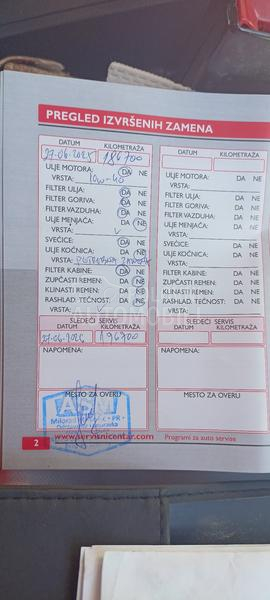 PREGLED IZVRŠENIH ZAMENA
DATUM KILOMETRAŽA
27.06.2025 186700
ULJE MOTORA: DA NE
VRSTA: 10W-40
FILTER ULJA: DA NE
FILTER GORIVA: DA NE
FILTER VAZDUHA: DA NE
ULJE MENJAČA: DA NE
VRSTA:
SVEĆICE: DA NE
ULJE KOČNICA: DA NE
VRSTA:
FILTER KABINE: DA NE
ZUPČASTI REMEN: DA NE
KLINASTI REMEN: DA NE
RASHLAD. TEČNOST: DA NE
VRSTA:
SLEDEĆI SERVIS
DATUM KILOMETRAŽA
27-06-2026 196700
NAPOMENA:
MESTO ZA OVERU
DATUM KILOMETRAŽA
ULJE MOTORA: DA NE
VRSTA:
FILTER ULJA: DA NE
FILTER GORIVA: DA NE
FILTER VAZDUHA: DA NE
ULJE MENJAČA: DA NE
VRSTA:
SVEĆICE: DA NE
ULJE KOČNICA: DA NE
VRSTA:
FILTER KABINE: DA NE
ZUPČASTI REMEN: DA NE
KLINASTI REMEN: DA NE
RASHLAD. TEČNOST: DA NE
VRSTA:
SLEDEĆI SERVIS
DATUM KILOMETRAŽA
NAPOMENA:
MESTO ZA OVERU
2 www.servisnicentar.com Programi za auto servise